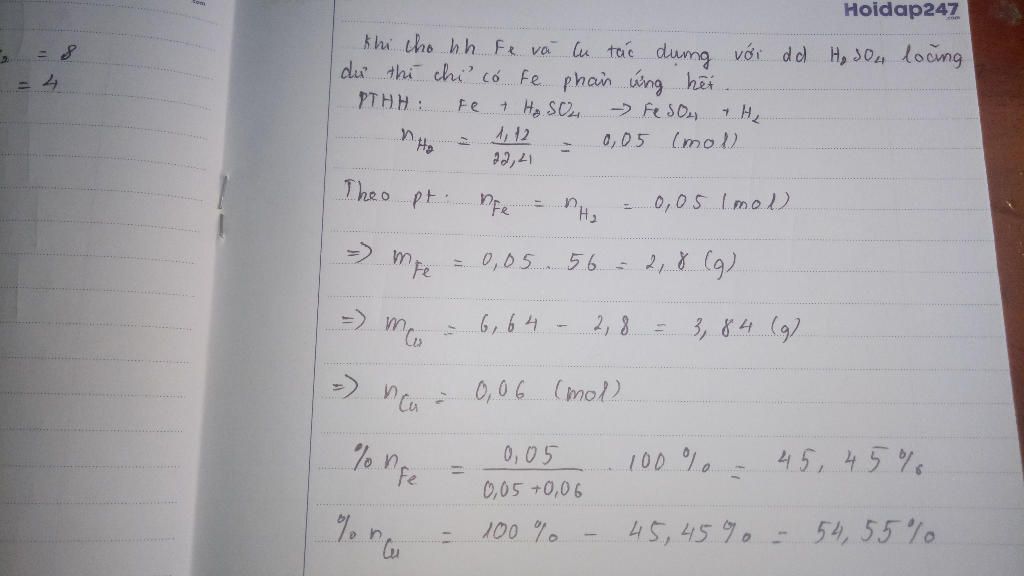 Hoidap247
.com
= 8
= 4
Khi cho hh Fe và Cu tác dụng với dd H₂SO₄ loãng
dư thì chỉ có Fe phản ứng hết.
PTHH: Fe + H₂SO₄ -> FeSO₄ + H₂
n_H₂ = 1,12 / 22,4 = 0,05 (mol)
Theo pt: n_Fe = n_H₂ = 0,05 (mol)
=> m_Fe = 0,05 . 56 = 2,8 (g)
=> m_Cu = 6,64 - 2,8 = 3,84 (g)
=> n_Cu = 0,06 (mol)
% n_Fe = 0,05 / 0,05 + 0,06 . 100 % = 45,45 %
% n_Cu = 100 % - 45,45 % = 54,55 %